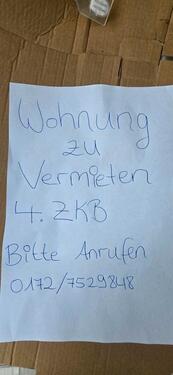 Wohnung
zu
Vermieten
4. ZKB
Bitte Anrufen
0172/7529848